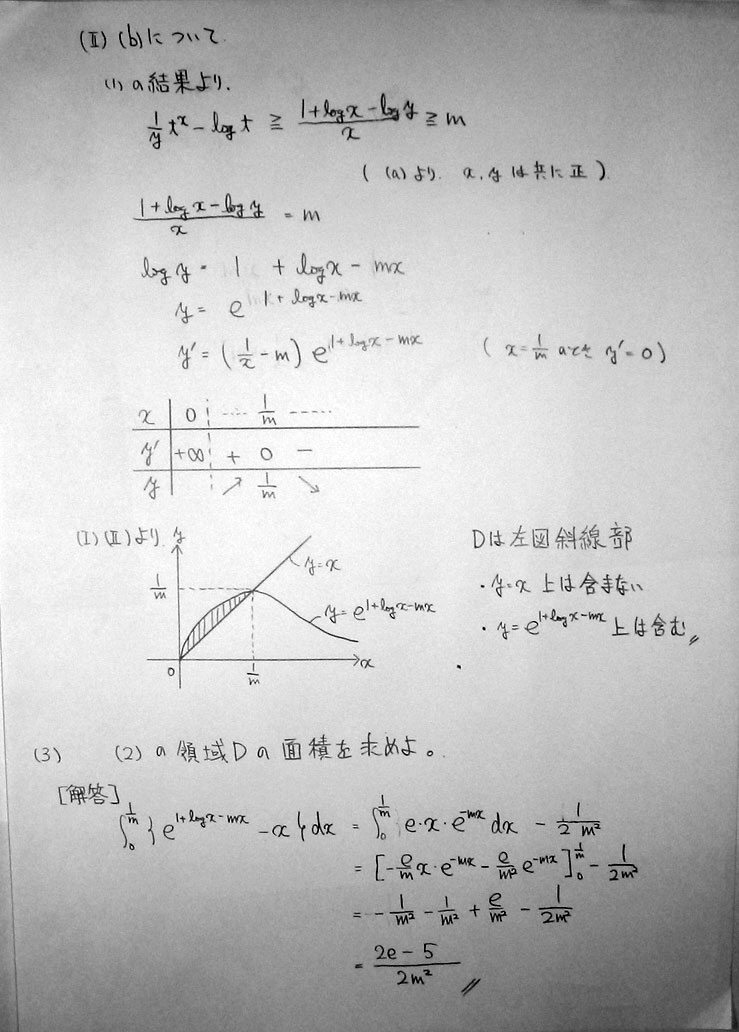 (Ⅱ) (b)について.
(1) の結果より.
1/y t^x − log t ≧ (1+log x − log y)/x ≧ m
( (a)より x, y は共に正 )
(1+log x − log y)/x = m
log y = 1 + log x − mx
y = e^(1+log x−mx)
y′ = (1/x − m) e^(1+log x−mx) ( x=1/m のとき y′=0 )
x | 0 | ‥‥ 1/m ‥‥‥
y′ | +∞ | + 0 −
y | ↗ 1/m ↘
(Ⅰ)(Ⅱ)より. y
Dは左図斜線部
y=x
1/m
・y=x 上は含まない
y=e^(1+log x−mx)
・y=e^(1+log x−mx) 上は含む〃
0 1/m x
(3) (2)の領域Dの面積を求めよ。
[解答]
∫_0^(1/m) { e^(1+log x−mx) − x } dx = ∫_0^(1/m) e·x·e^(−mx) dx − 1/(2m²)
= [−e/m x·e^(−mx) − e/m² e^(−mx)]_0^(1/m) − 1/(2m²)
= −1/m² − 1/m² + e/m² − 1/(2m²)
= (2e−5)/(2m²) 〃